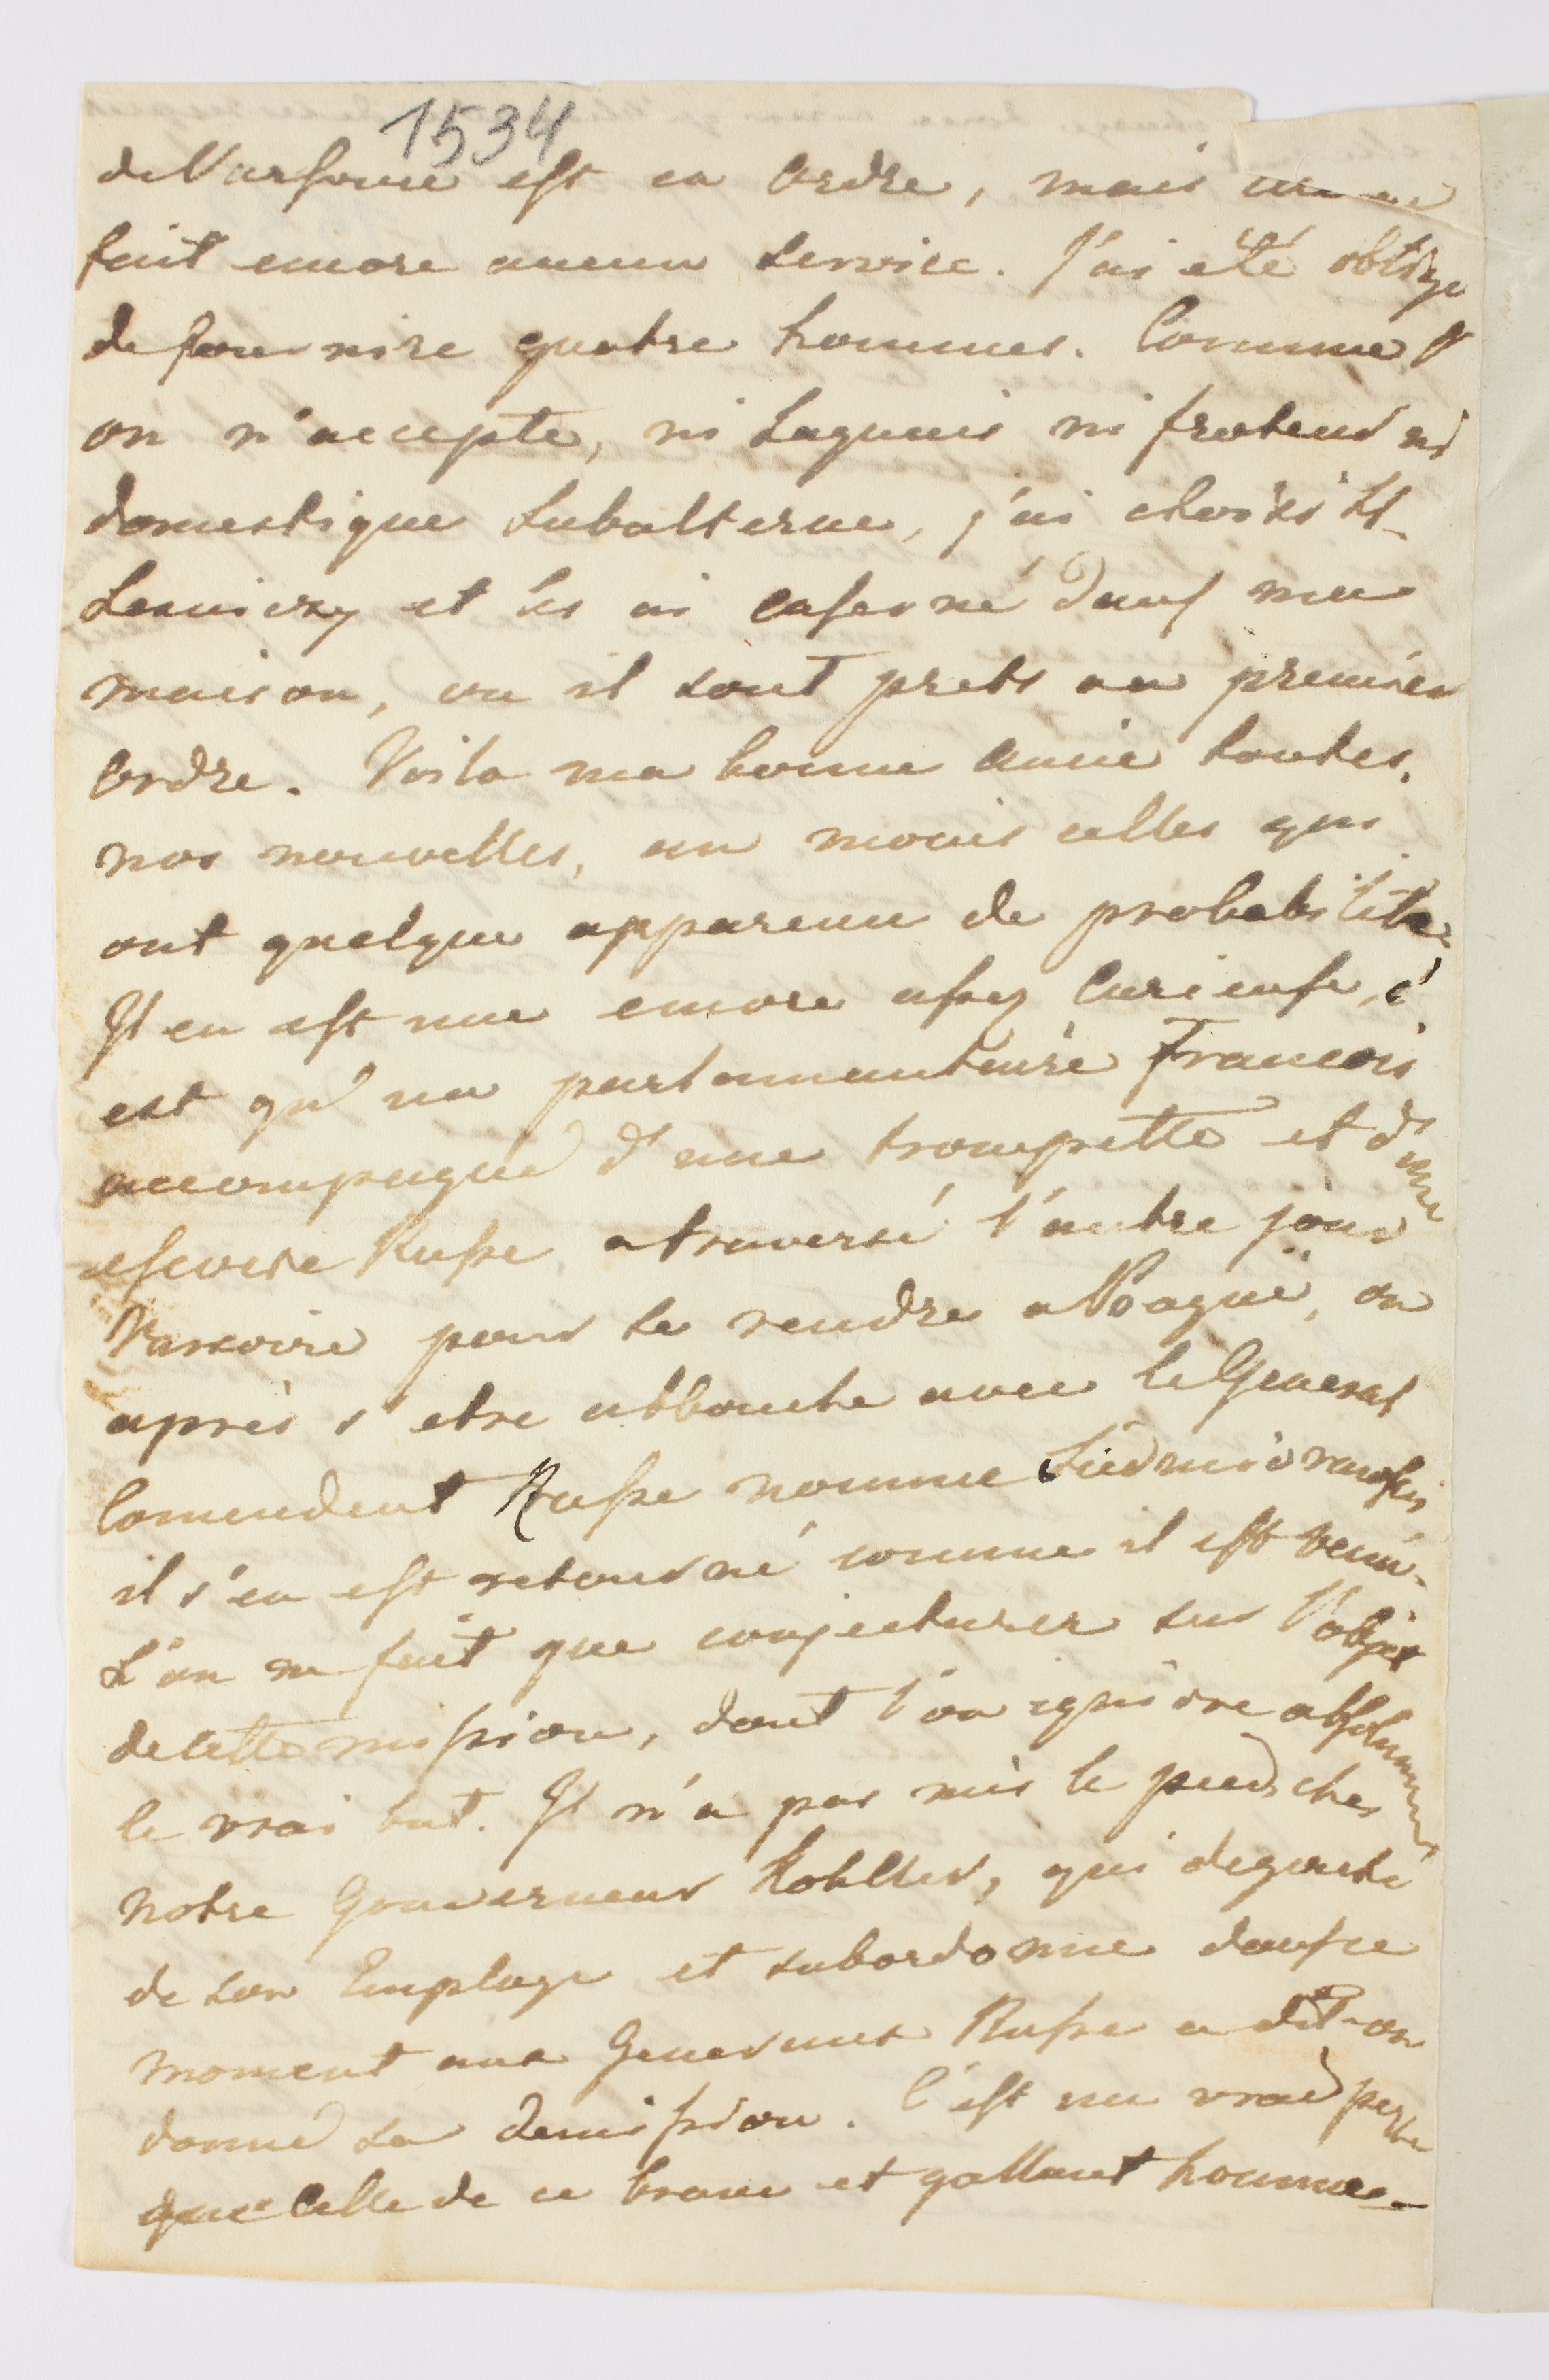 1534
de Varsovie est en ordre, mais ne
fait encore aucun service. J'ai été obligé
de fournire quatre hommes. Comme l'
on n'accepte, ni Laquais ni froteur ni
domestique subalterne, j'ai choisi
et les ai caserné dans ma
maison, ou il sont prets au premier
ordre. Voila ma bonne amie toutes
nos nouvelles, au moins celles qui
ont quelque apparence de probabilité.
Il en est une encore assez curieuse, c'
est qu'un parlamentaire Francois
accompagné d'une trompette et d'une
escorte Russe, a traversé l'autre jour
Varsovie pour se rendre a Prague, ou
après s'etre abbouche avec le General
Comendent Russe nomme
il s'en est retourné comme il est venu.
L'on ne fait que conjecturer sur l'objet
de cette mission, dont l'on ignore absolument
le vrai but. Il n'a pas mis le pied ches
notre Gouverneur Kohller, qui degouté
de son Employe et subordonne dans ce
moment aux Generaux Russe a dit-on
donné sa demission. C'est un vrai perte
que celle de ce brave et gallant homme.